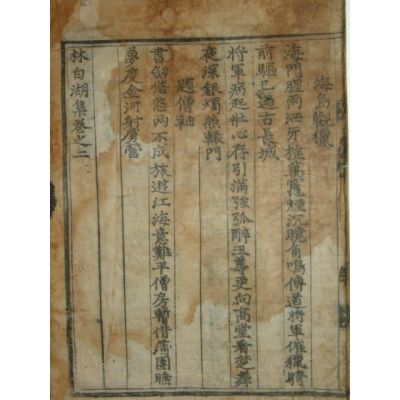 海島觀獵
海門腥雨洒牙旌萬竈煙沉曉角鳴傳道將軍催獵騎
前驅已過古長城
將軍病起壯心存引滿強弧醉玉尊更向高堂看楚舞
夜深銀燭照轅門
題僧軸
書劍悠悠兩不成旅遊江海意難平僧房暫借蒲團睡
夢度金河射虜營
林白湖集卷之二